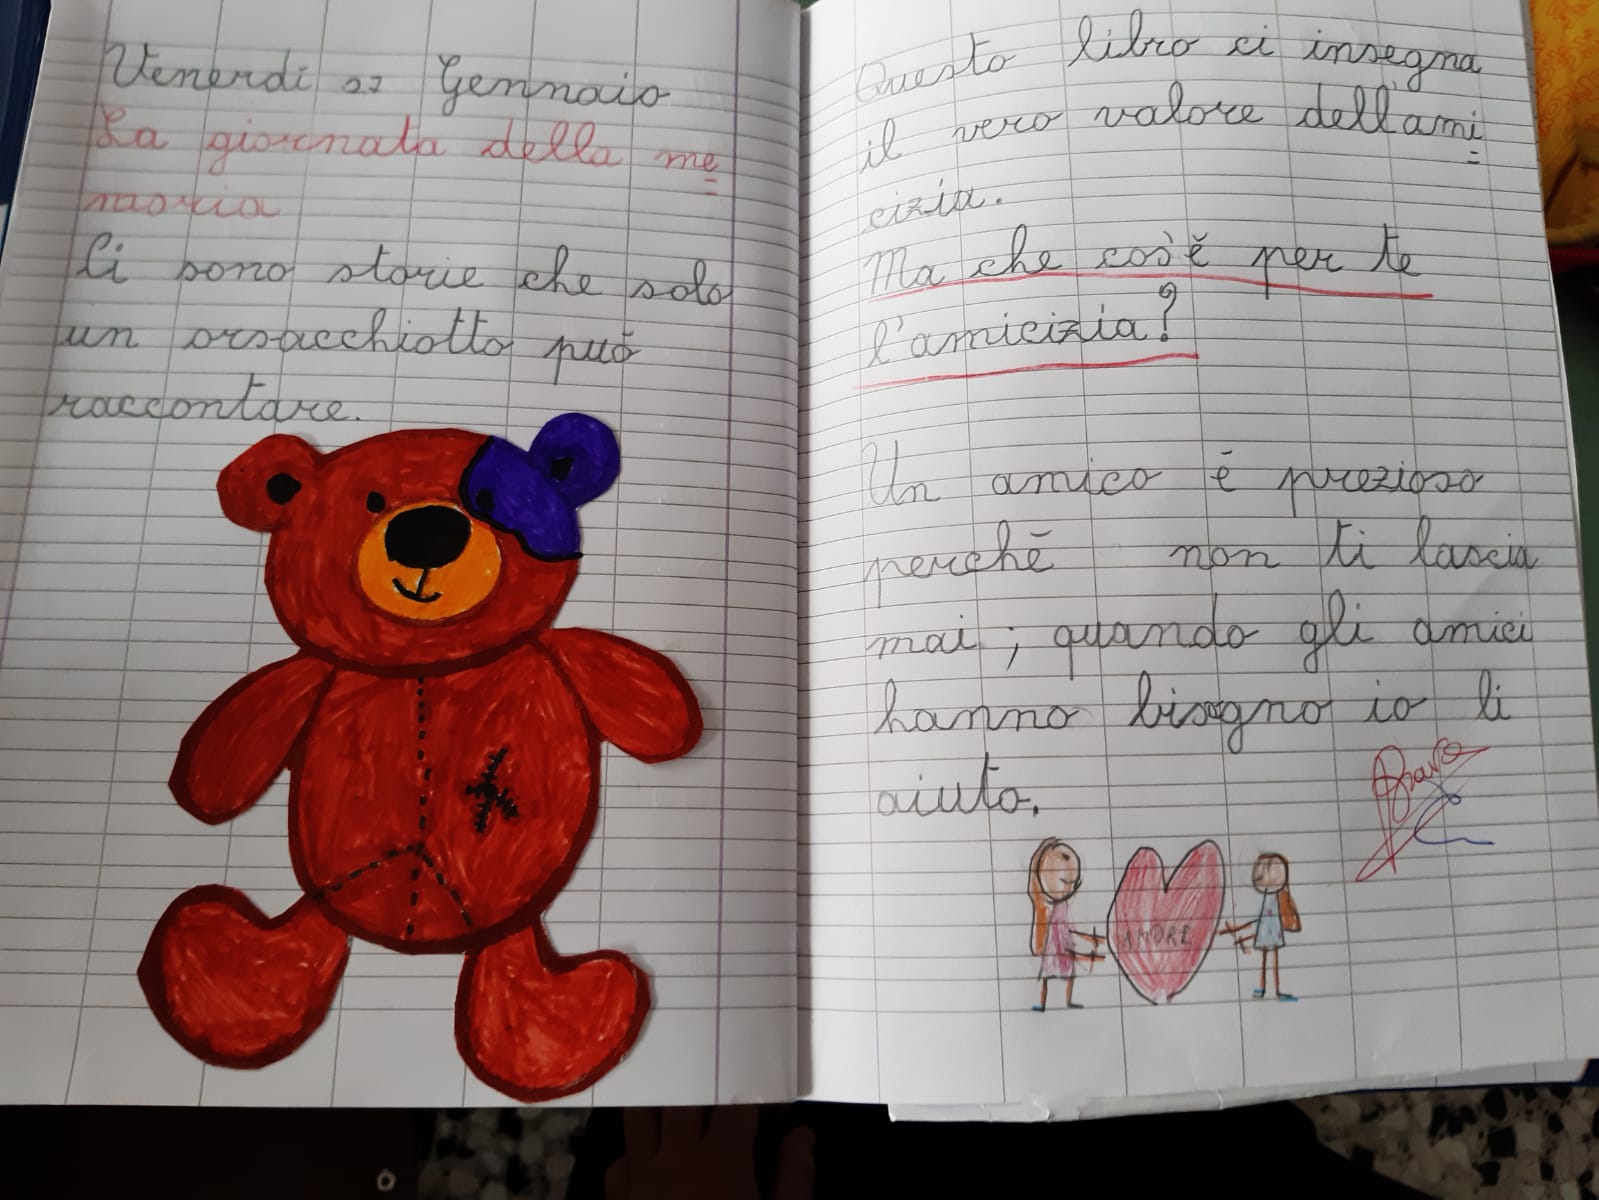 Venerdì 27 Gennaio
La giornata della me
moria
Ci sono storie che solo
un orsacchiotto può
raccontare.
Questo libro ci insegna
il vero valore dell'ami
cizia.
Ma che cos'è per te
l'amicizia?
Un amico è prezioso
perchè non ti lascia
mai; quando gli amici
hanno bisogno io li
aiuto.
Brava
AMORE